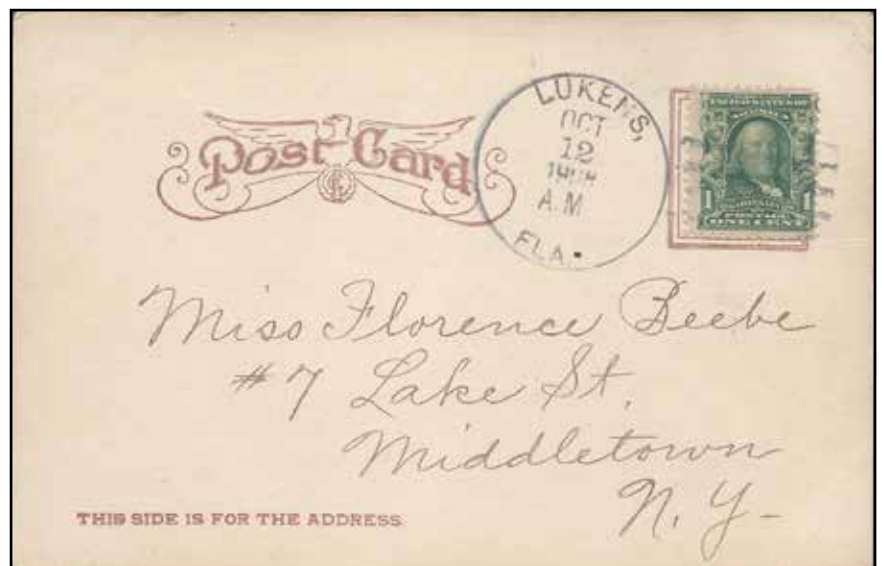 Post Card
LUKENS,
OCT
12
A.M
FLA.
1 1
POSTAGE
ONE CENT
Miss Florence Beebe
#7 Lake St.
Middletown
N. Y-
THIS SIDE IS FOR THE ADDRESS.